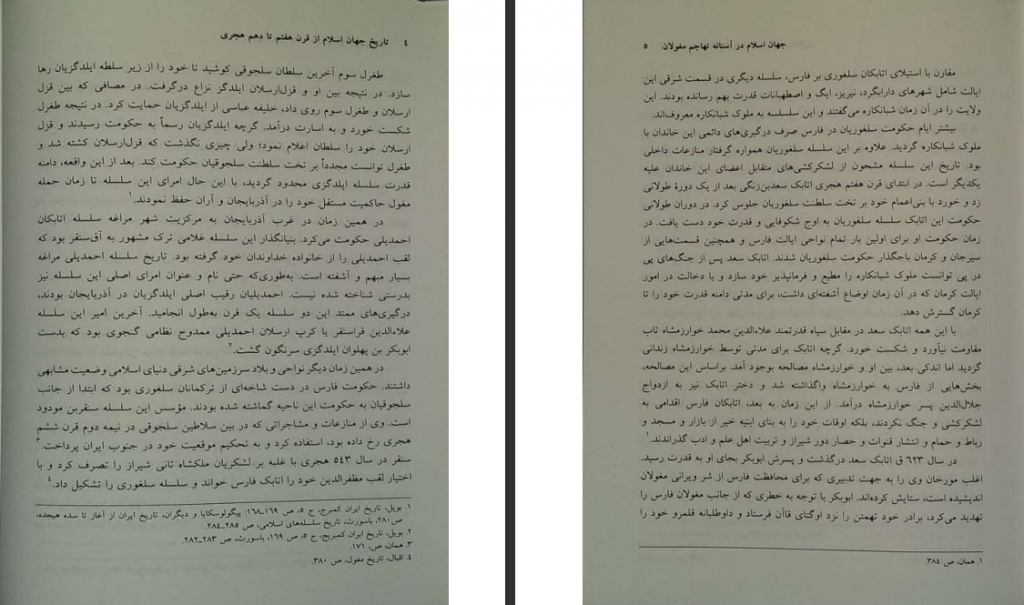 ٤ تاریخ جهان اسلام از قرن هفتم تا دهم هجری
طغرل سوم آخرین سلطان سلجوقی کوشید تا خود را از زیر سلطه ایلدگزیان رها
سازد. در نتیجه بین او و قزل‌ارسلان ایلدگز نزاع درگرفت. در مصافی که بین قزل
ارسلان و طغرل سوم روی داد، خلیفه عباسی از ایلدگزیان حمایت کرد. در نتیجه طغرل
شکست خورد و به اسارت درآمد. گرچه ایلدگزیان رسماً به حکومت رسیدند و قزل
ارسلان خود را سلطان اعلام نمود؛ ولی چیزی نگذشت که قزل‌ارسلان کشته شد و
طغرل توانست مجدداً بر تخت سلطنت سلجوقیان حکومت کند. بعد از این واقعه، دامنه
قدرت سلسله ایلدگزی محدود گردید، با این حال امرای این سلسله تا زمان حمله
مغول حاکمیت مستقل خود را در آذربایجان و آران حفظ نمودند.۱
در همین زمان در غرب آذربایجان به مرکزیت شهر مراغه سلسله اتابکان
احمدیلی حکومت می‌کرد. بنیانگذار این سلسله غلامی ترک مشهور به آق‌سنقر بود که
لقب احمدیلی را از خانواده خداوندان خود گرفته بود. تاریخ سلسله احمدیلی مراغه
بسیار مبهم و آشفته است. به‌طوری‌که حتی نام و عنوان امرای اصلی این سلسله نیز
بدرستی شناخته شده نیست. احمدیلیان رقیب اصلی ایلدگزیان در آذربایجان بودند،
درگیری‌های ممتد این دو سلسله یک قرن به‌طول انجامید. آخرین امیر این سلسله
علاءالدین قراسنقر یا کرپ ارسلان احمدیلی ممدوح نظامی گنجوی بود که بدست
ابوبکر بن پهلوان ایلدگزی سرنگون گشت.۲
در همین زمان دیگر نواحی و بلاد سرزمین‌های شرقی دنیای اسلامی وضعیت مشابهی
داشتند. حکومت فارس در دست شاخه‌ای از ترکمانان سلغوری بود که ابتدا از جانب
سلجوقیان به حکومت این ناحیه گماشته شده بودند. مؤسس این سلسله سنقربن مودود
است. وی از منازعات و مشاجراتی که در بین سلاطین سلجوقی در نیمه دوم قرن ششم
هجری رخ داده بود، استفاده کرد و به تحکیم موقعیت خود در جنوب ایران پرداخت.۳
سنقر در سال ۵٤۳ هجری با غلبه بر لشکریان ملکشاه ثانی شیراز را تصرف کرد و با
اختیار لقب مظفرالدین خود را اتابک فارس خواند و سلسله سلغوری را تشکیل داد.٤
۱. بویل، تاریخ ایران کمبریج، ج ۵، ص ۱۶۹ـ۱۶۸؛ پیگولوسکایا و دیگران، تاریخ ایران از آغاز تا سده هیجده،
ص۲۸۰، باسورث، تاریخ سلسله‌های اسلامی، ص ۲۸۵ـ۲۸٤.
۲. بویل، تاریخ ایران کمبریج، ج ۵، ص ۱۶۹، باسورث، ص ۲۸۳ـ۲۸۲.
۳. همان، ص، ۱۷۱.
٤. اقبال، تاریخ مغول، ص ۳۸۰.
جهان اسلام در آستانه تهاجم مغولان ۵
مقارن با استیلای اتابکان سلغوری بر فارس، سلسله دیگری در قسمت شرقی این
ایالت شامل شهرهای دارابگرد، نیریز، ایگ و اصطهبانات قدرت بهم رسانده بودند. این
ولایت را در آن زمان شبانکاره می‌گفتند و این سلسله به ملوک شبانکاره معروف‌اند.
بیشتر ایام حکومت سلغوریان در فارس صرف درگیری‌های دائمی این خاندان با
ملوک شبانکاره گردید. علاوه بر این سلسله سلغوریان همواره گرفتار منازعات داخلی
بود. تاریخ این سلسله مشحون از لشکرکشی‌های متقابل اعضای این خاندان علیه
یکدیگر است. در ابتدای قرن هفتم هجری اتابک سعدبن‌زنگی بعد از یک دورۀ طولانی
زد و خورد با بنی‌اعمام خود بر تخت سلطنت سلغوریان جلوس کرد. در دوران طولانی
حکومت این اتابک سلسله سلغوریان به اوج شکوفایی و قدرت خود دست یافت. در
زمان حکومت او برای اولین بار تمام نواحی ایالت فارس و همچنین قسمت‌هایی از
سیرجان و کرمان باجگذار حکومت سلغوریان شدند. اتابک سعد پس از جنگ‌های پی
در پی توانست ملوک شبانکاره را مطیع و فرمانپذیر خود سازد و با دخالت در امور
ایالت کرمان که در آن زمان اوضاع آشفته‌ای داشت، برای مدتی دامنه قدرت خود را تا
کرمان گسترش دهد.
با این همه اتابک سعد در مقابل سپاه قدرتمند علاءالدین محمد خوارزمشاه تاب
مقاومت نیآورد و شکست خورد. گرچه اتابک برای مدتی توسط خوارزمشاه زندانی
گردید اما اندکی بعد، بین او و خوارزمشاه مصالحه بوجود آمد. براساس این مصالحه،
بخش‌هایی از فارس به خوارزمشاه واگذاشته شد و دختر اتابک نیز به ازدواج
جلال‌الدین پسر خوارزمشاه درآمد. از این زمان به بعد، اتابکان فارس اقدامی به
لشکرکشی و جنگ نکردند، بلکه اوقات خود را به بنای ابنیه خیر از بازار و مسجد و
رباط و حمام و انتشار قنوات و حصار دور شیراز و تربیت اهل علم و ادب گذراندند.۱
در سال ۶۲۳ ق اتابک سعد درگذشت و پسرش ابوبکر بجای او به قدرت رسید.
اغلب مورخان وی را به جهت تدبیری که برای محافظت فارس از شر ویرانی مغولان
اندیشیده است، ستایش کرده‌اند. ابوبکر با توجه به خطری که از جانب مغولان فارس را
تهدید می‌کرد، برادر خود تهمتن را نزد اوگتای قاآن فرستاد و داوطلبانه قلمرو خود را
۱. همان، ص ۳۸٤.